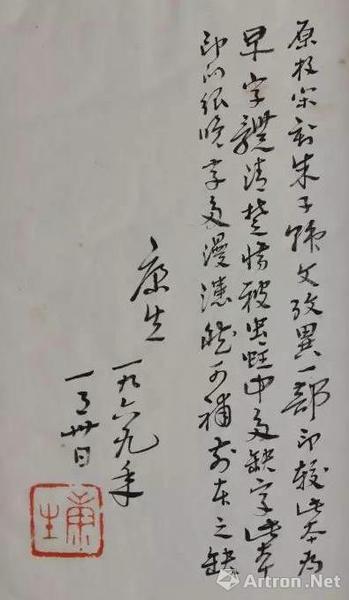 原宋刻朱子韩文攷異一部印较此本为
早字體清楚惜被虫蛀中多缺字此本
印的很晚字多漫漶然可補前本之缺
康生
一九六九年
一月卅日
康生
Artron.Net
雅昌艺术网